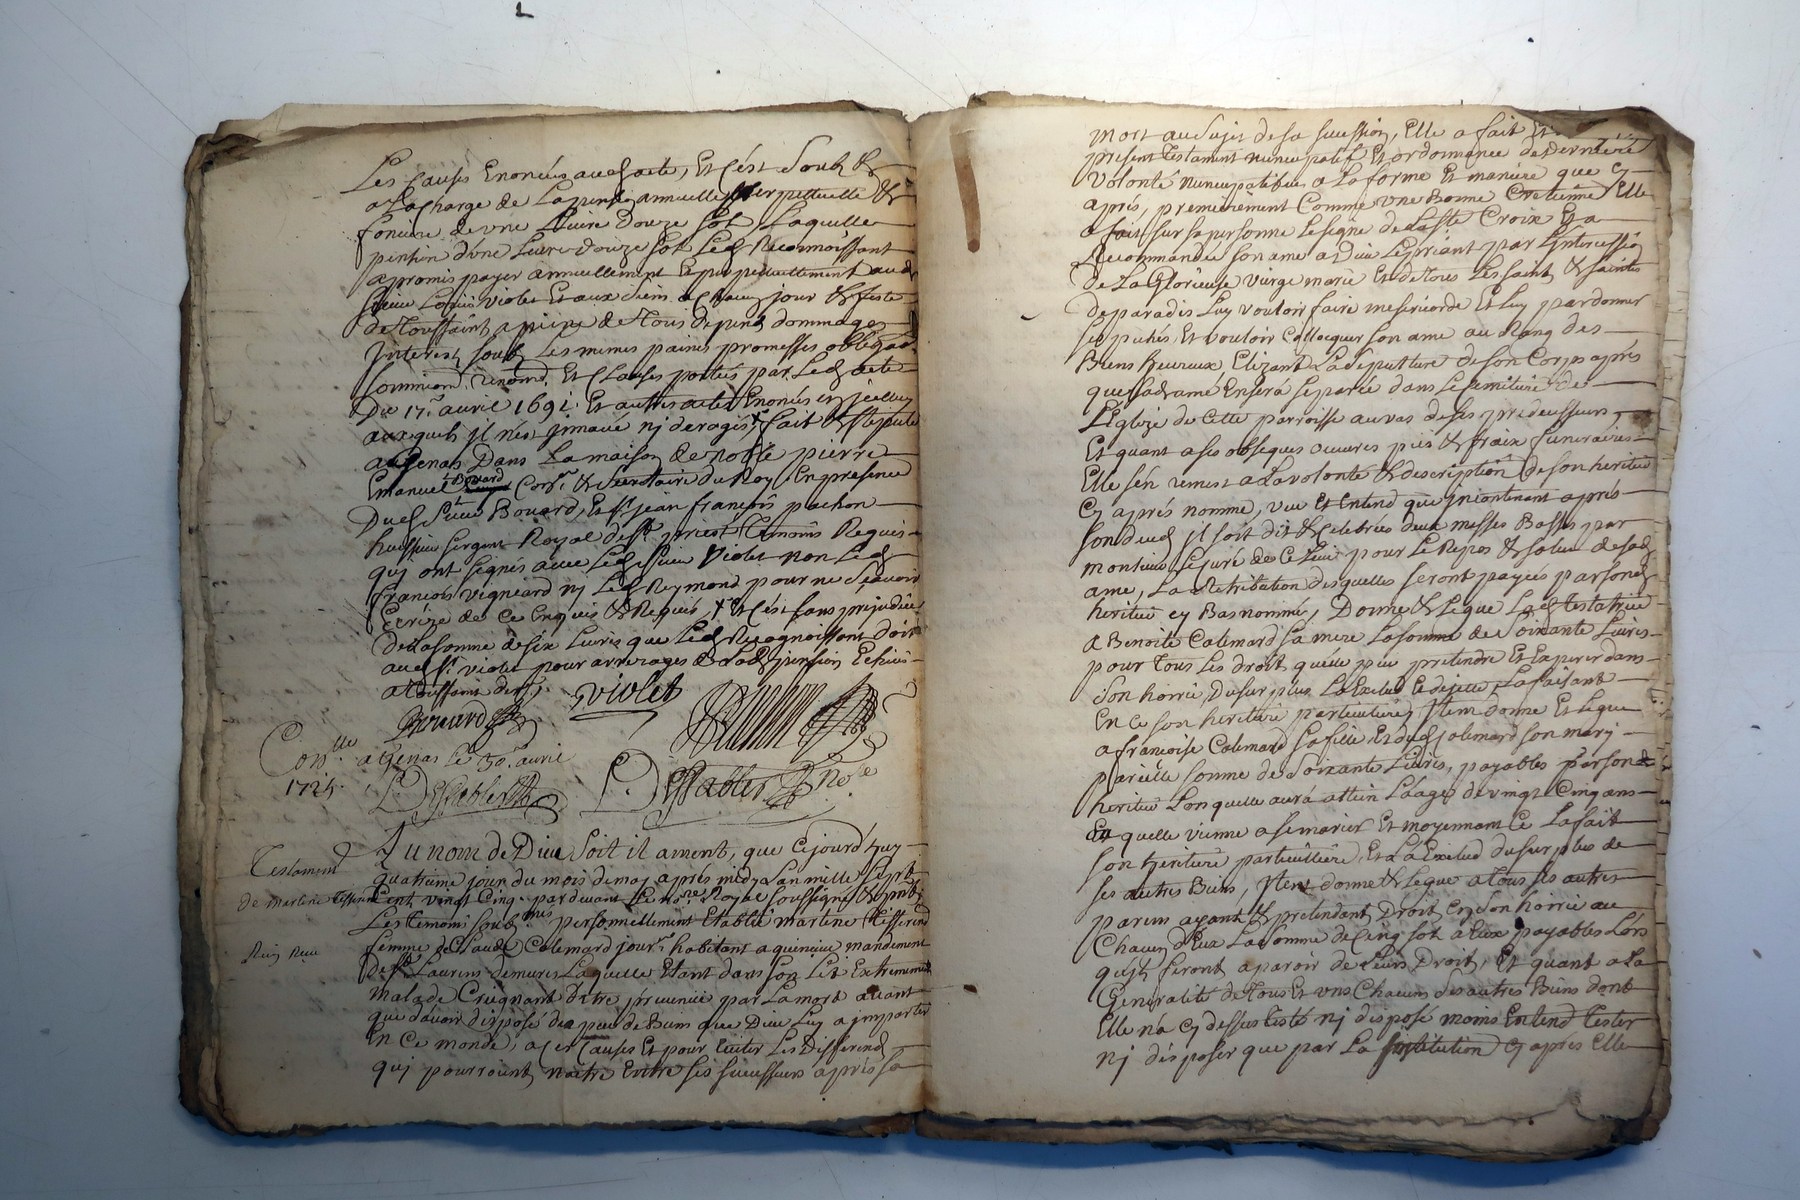 Les causes Enoncées aud acte, Et C'est Soubz &
a La Charge de La pention annuelle perpettuelle &
fonciere de une Livre Douze sols Laquelle
pention d'une Livre Douze sols Led Reconnoissant
a promis payer annuellement et perpettuellement aud
Sieur Louis Violet Et aux Siens a chacun jour & feste
de Toussaint, a peine de Tous depens dommages
Interest soubz Les mesmes paines promesses obligaõn
Et Clauses portées par Led acte
Du 17e avril 1691. Et autres actes Enoncés en jcelluy
auxquels il n'est jnnové nj derogé, fait & stipulé
a Genas Dans La maison de noble pierre
Emanuel Bovard Conr & Secretaire du Roy, En presence
Dud Sieur Bovard, Et Sr jean françois pachon
huissier sergent Royal de St priest Temoins Requis
quj ont signés avec Led Sieur Violet non Led
françois vigniard nj Led Reymond pour ne Sçavoir
Ecrire de Ce Enquis & Requis, Et C'est sans prejudice
de La somme de six Livres que Led Recognoissant doit
aud Sr violet pour arrerages de Lad pension Echeüs
a Toussaint der
Bovard violet
Conlle a Genas Le 30e avril
1725.
Au nom de Dieu Soit il ament, que Cejourd'huy
Testament
quatrieme jour du mois de may apres midy L'an mille sept
de Martene Tifferend Cent vingt Cinq. par devant Le nore Royal soussigné &
Les Temoins soubnmés personnellement Etablie martene Tifferend
Rien Receu
femme de Claude Calemard jourr habitant a quincieu mandement
de St Laurens demures Laquelle Etant dans son Lit Extremement
malade Creignant d'etre prevenüe par La mort avant
que d'avoir disposé du peu de Biens que Dieu Luy a jmparter
En Ce monde, a Ces Causes Et pour Eviter Les Differends
quj pourroient naitre Entre ses successeurs apres sa
mort au Sujet de sa succession, Elle a fait Et
present Testament nuncupatif Et ordonnance de Derniere
Volonté nuncupatifve a La forme Et maniere que Cy
apres, premierement Comme une Bonne Cretienne Elle
a fait sur sa personne Le signe de La Ste Croix Et a
Recommandée son ame a Dieu Le priant par L'Intercession
de La Glorieuse vierge marie Et de Tous Les saints & saintes
de paradis Luy vouloir faire misericorde Et Luy pardonner
ses pechés Et vouloir Collocquer son ame au Rang des
Biens heureux, Elizant La Sepulture de son Corps apres
que sad ame En sera separée dans Le semitiere de
L'Eglize de Cette parroisse au vas de ses predecesseurs
Et quant a ses obseques oeuvres pies & fraix funeraires
Elle s'en remest a La volonté & description de son heritier
Cy apres nommé, veu Et Entend que jncontinent apres
son deced il soit dit & Celebrées deux messes Basses par
monsieur Le Curé de Ce Lieu pour Le Repos & salut de sad
ame, La Retribution desquelles seront payées par sond
heritier cy Bas nommé, Donne & Legue Lad Testatrice
a Benoite Calemard sa mere La somme de Soixante Livres
pour Tous Les droit quelle peu pretendre Et Esperer dans
Son hoirie, Du surplus La Exclud & dejette, La faisant
En Ce son heritiere particuliere, Item donne Et Legue
a francoise Calemard sa fille Et dud Calemard son marj
pareille somme de Soixante Livres, payables par sond
heritier Lors quelle aura attein L'aage de vingt Cinq ans
ou quelle vienne a se marier Et moyennant Ce La fait
son heritiere particuliere Et La Exclud du surplus de
ses autres Biens, Item donne & Legue a Tous ses autres
parens ayant & pretendant Droit En Son hoirie au
Chacun d'Eux La somme de Cinq sols a Eux payables Lors
qu'ils feront aparoir de Leurs Droit, Et quant a La
Generalité de Tous Et uns Chacuns des autres Biens dont
Elle n'a Cy dessus Testé nj disposé moins Entend Tester
nj disposer que par La Institution Cy apres Elle